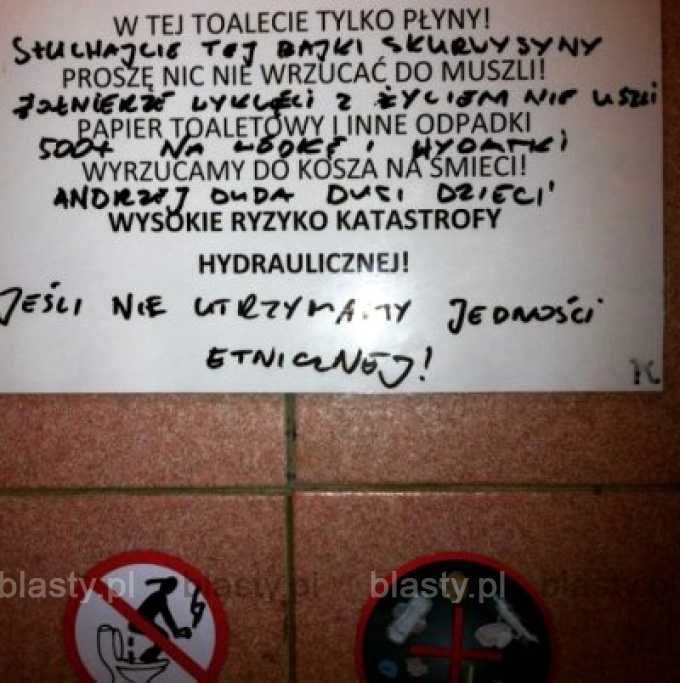 W TEJ TOALECIE TYLKO PŁYNY!
SŁUCHAJCIE TEJ BAJKI SKURWYSYNY
PROSZĘ NIC NIE WRZUCAĆ DO MUSZLI!
ŻOŁNIERZE WYKLĘCI Z ŻYCIEM NIE USZLI
PAPIER TOALETOWY I INNE ODPADKI
500+ NA WÓDKĘ I WYDATKI
WYRZUCAMY DO KOSZA NA ŚMIECI!
ANDRZEJ DUDA DUSI DZIECI
WYSOKIE RYZYKO KATASTROFY
HYDRAULICZNEJ!
JEŚLI NIE UTRZYMAMY JEDNOŚCI
ETNICZNEJ!
blasty.pl blasty.pl blasty.pl blasty.p